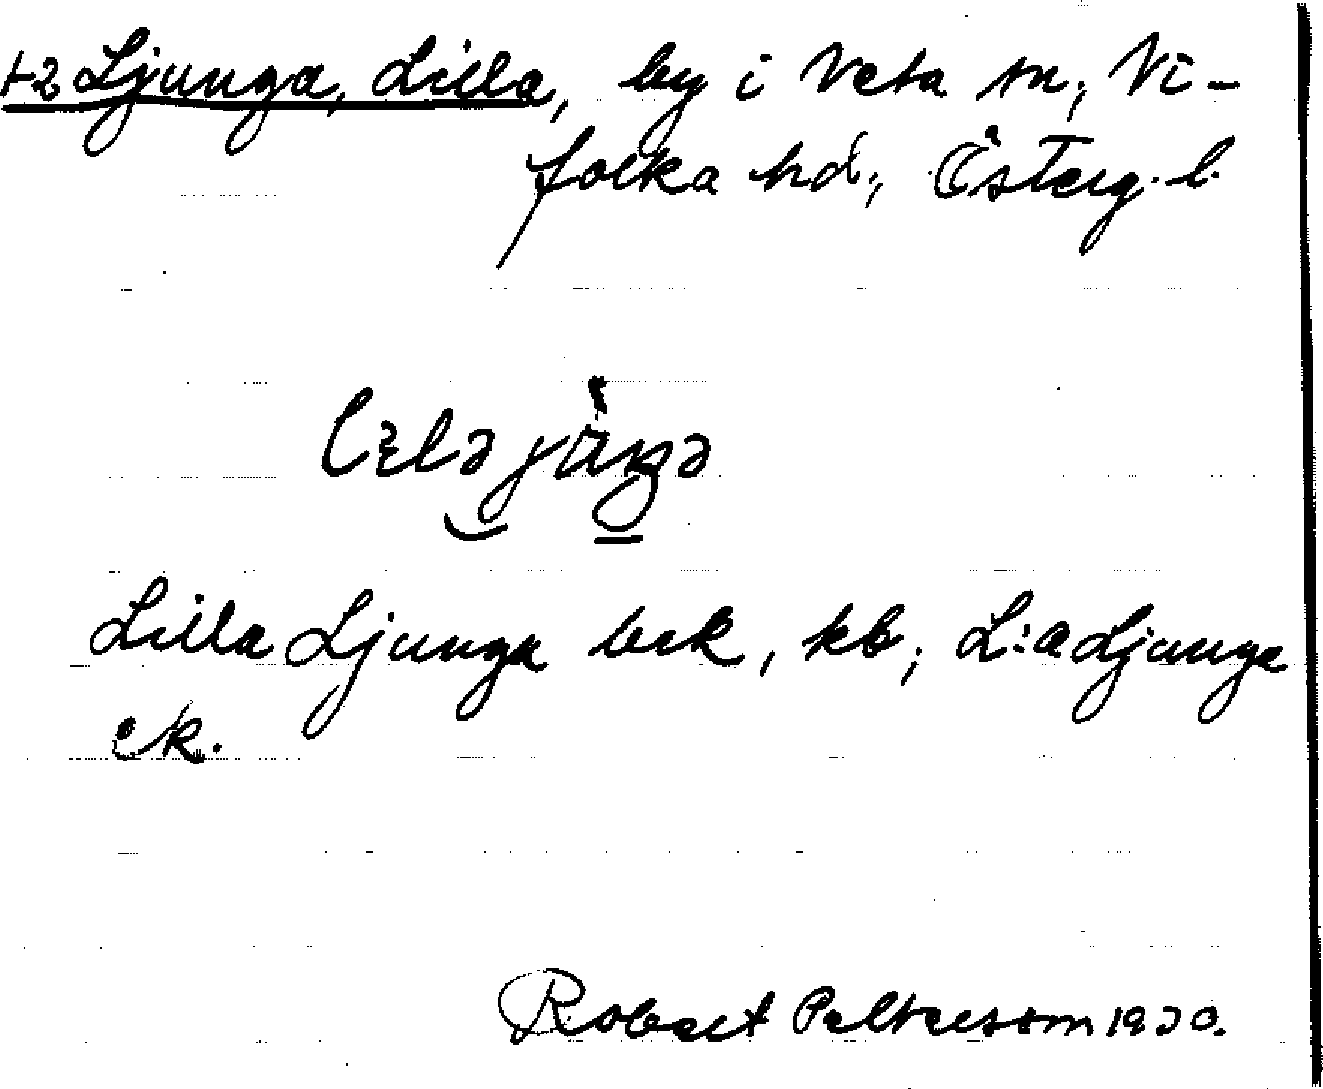 +2 Ljunga, Lilla, by i Veta sn, Vi-
folka hd, Österg. l.
Lilla Ljunga bek, kb, L:a Ljunga
ek.
Robert Pettersson 1930.